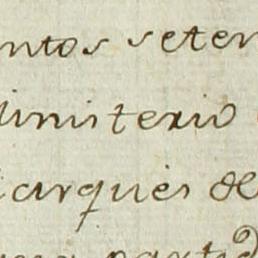 ntos seten
Ministerio
arques de